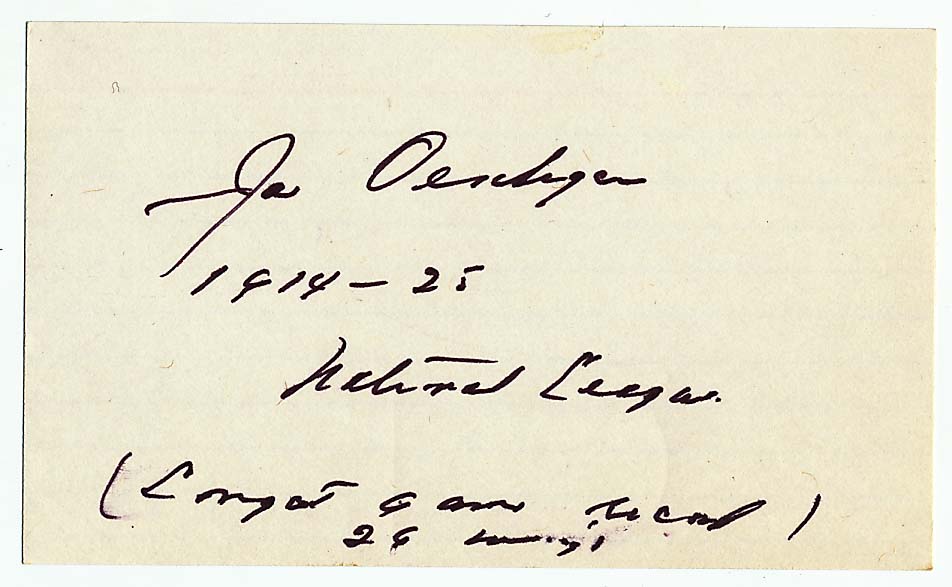 Joe Oeschger
1914 - 25
National League.
(Longest game record)
26 innings